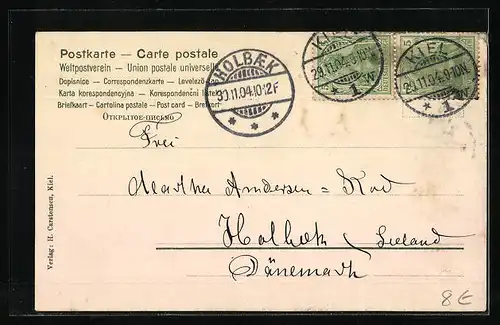 Postkarte — Carte postale
Weltpostverein — Union postale universelle
Dopisnice — Correspondenzkarte — Levelező-
Karta korespondencyjna — Korespondenční lístek
Brief­kaart — Cartolina postale — Post card — Brefkort
Открытое письмо
HOLBÆK
30.11.04.10-12F
KIEL
29.11.04.9-10N.
* 1 W
KIEL
29.11.04.9-10N.
* 1 W
Frei
Martha Andersen = Rod
Holbæk (Seeland
Dänemark
Verlag: H. Carstensen, Kiel.
8€